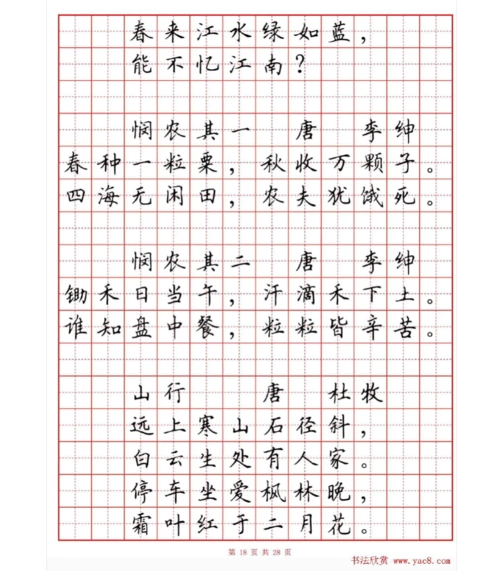 春来江水绿如蓝，
能不忆江南？
悯农其一 唐 李绅
春种一粒粟，秋收万颗子。
四海无闲田，农夫犹饿死。
悯农其二 唐 李绅
锄禾日当午，汗滴禾下土。
谁知盘中餐，粒粒皆辛苦。
山行 唐 杜牧
远上寒山石径斜，
白云生处有人家。
停车坐爱枫林晚，
霜叶红于二月花。
第 18 页 共 28 页
书法欣赏 www.yac8.com